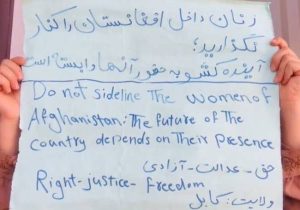 زنان داخل افغانستان را کنار
نگذارید؛
آینده کشور به حضور آنها وابسته است
Do not sideline The women of
Afghanistan: The future of The
country depends on Their presence
حق - عدالت - آزادی
Right - justice - Freedom
ولایت: کابل